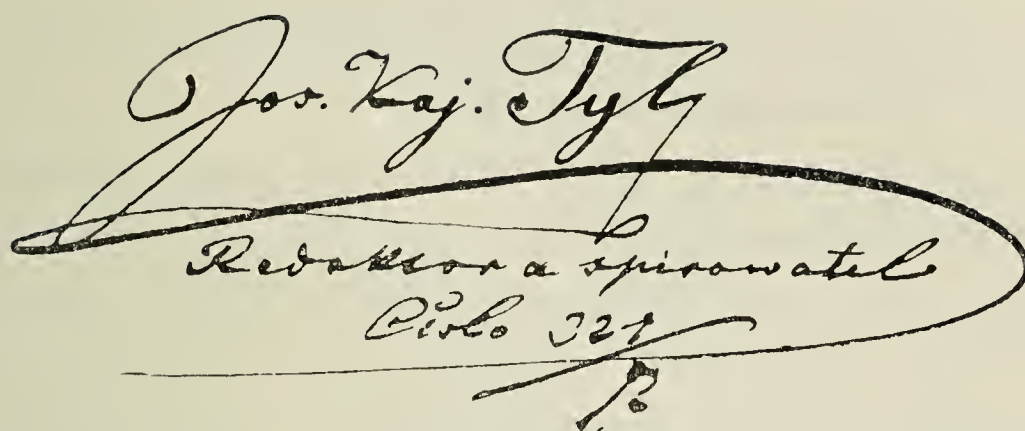 Jos. Kaj. Tyl
Redaktor a spisowatel
Číslo